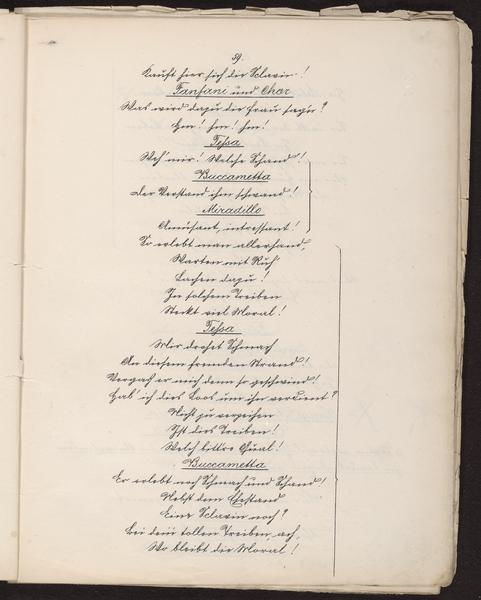 59.
Kauft hier sich die Sclavin!
Fanfani und Chor
Was wird dazu die Frau sagen?
Hm! hm! hm!
Tessa
Weh' mir! Welche Schand'!
Buccametta
Der Verstand ihm schwand!
Miradillo
Amüsant, intressant!
So erlebt man allerhand,
Warten mit Ruh'
Lachen dazu!
In solchem Treiben
Steckt viel Moral!
Tessa
Mir drohet Schmach
An diesem fremden Strand!
Vergaß er mich denn so geschwind!
Hab' ich dies Loos um ihn verdient?
Nicht zu verzeihen
Ist dies Treiben!
Welch bittre Qual!
Buccametta
Er erlebt noch Schmach und Schand!
Nebst dem Ehestand
Eine Sclavin noch?
Bei dem tollen Treiben, ach,
Wo bleibt die Moral!